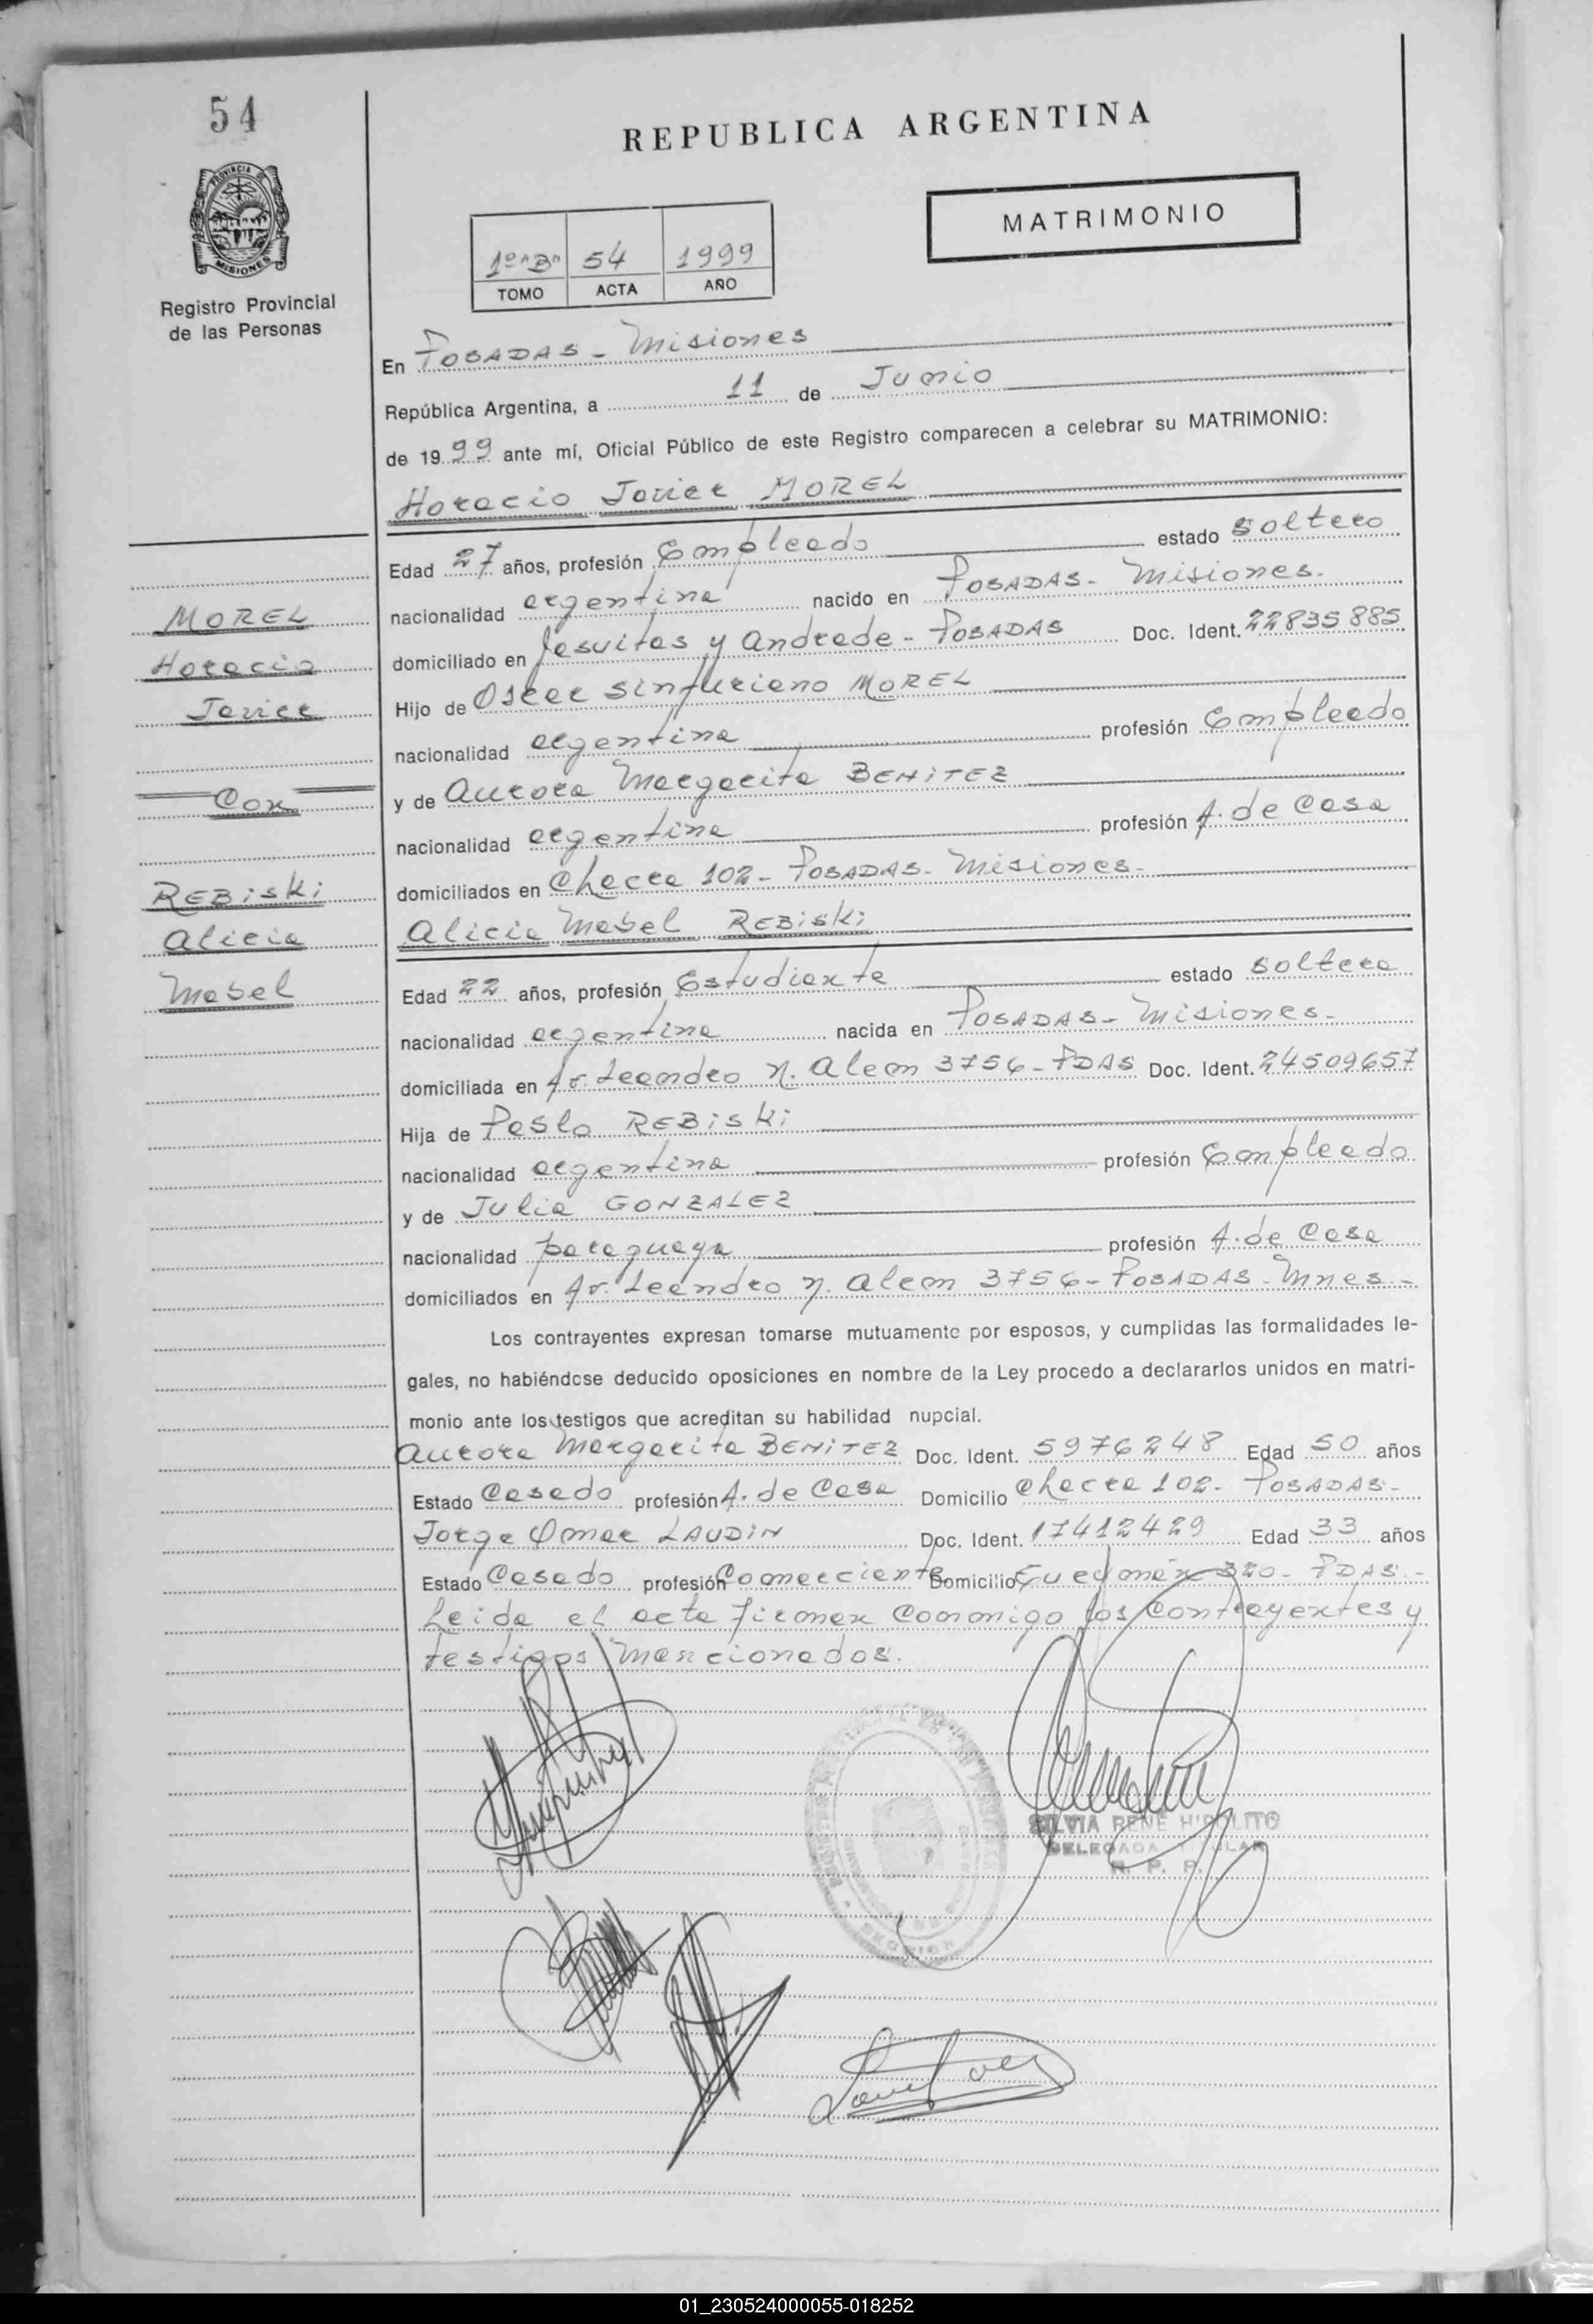 54
REPUBLICA ARGENTINA
PROVINCIA DE
MISIONES
MATRIMONIO
1º "B" 54 1999
TOMO ACTA AÑO
Registro Provincial
de las Personas
En POSADAS - Misiones
República Argentina, a 11 de Junio
de 1999 ante mí, Oficial Público de este Registro comparecen a celebrar su MATRIMONIO:
Horacio Javier MOREL
Edad 27 años, profesión Empleado estado soltero
nacionalidad argentina nacido en POSADAS - Misiones.
domiciliado en Jesuitas y Andrade - POSADAS Doc. Ident. 22835885
Hijo de Oscar Sinfuriano MOREL
nacionalidad argentina profesión Empleado
y de Aurora Margarita BENITEZ
nacionalidad argentina profesión A. de Casa
domiciliados en Chacra 102 - POSADAS - Misiones -
Alicia Mabel REBiski
MOREL
Horacio
Javier
Con
REBiski
Alicia
Mabel
Edad 22 años, profesión Estudiante estado soltera
nacionalidad argentina nacida en POSADAS - Misiones -
domiciliada en Av. Leandro N. Alem 3756 - PDAS Doc. Ident. 24509657
Hija de Pablo REBiski
nacionalidad argentina profesión Empleado
y de Julia GONZALEZ
nacionalidad paraguaya profesión A. de Casa
domiciliados en Av. Leandro N. Alem 3756 - POSADAS - Mnes -
Los contrayentes expresan tomarse mutuamente por esposos, y cumplidas las formalidades le-
gales, no habiéndose deducido oposiciones en nombre de la Ley procedo a declararlos unidos en matri-
monio ante los testigos que acreditan su habilidad nupcial.
Aurora Margarita BENITEZ Doc. Ident. 5976248 Edad 50 años
Estado Casado profesión A. de Casa Domicilio Chacra 102 - POSADAS -
Jorge Omar LAUDIN Doc. Ident. 17412429 Edad 33 años
Estado Casado profesión Comerciante Domicilio 320 - PDAS -
Leida el acta firman conmigo los contrayentes y
testigos mencionados.
SILVIA RENE HIPOLITO
DELEGADA TITULAR
R. P. P.
01_230524000055-018252